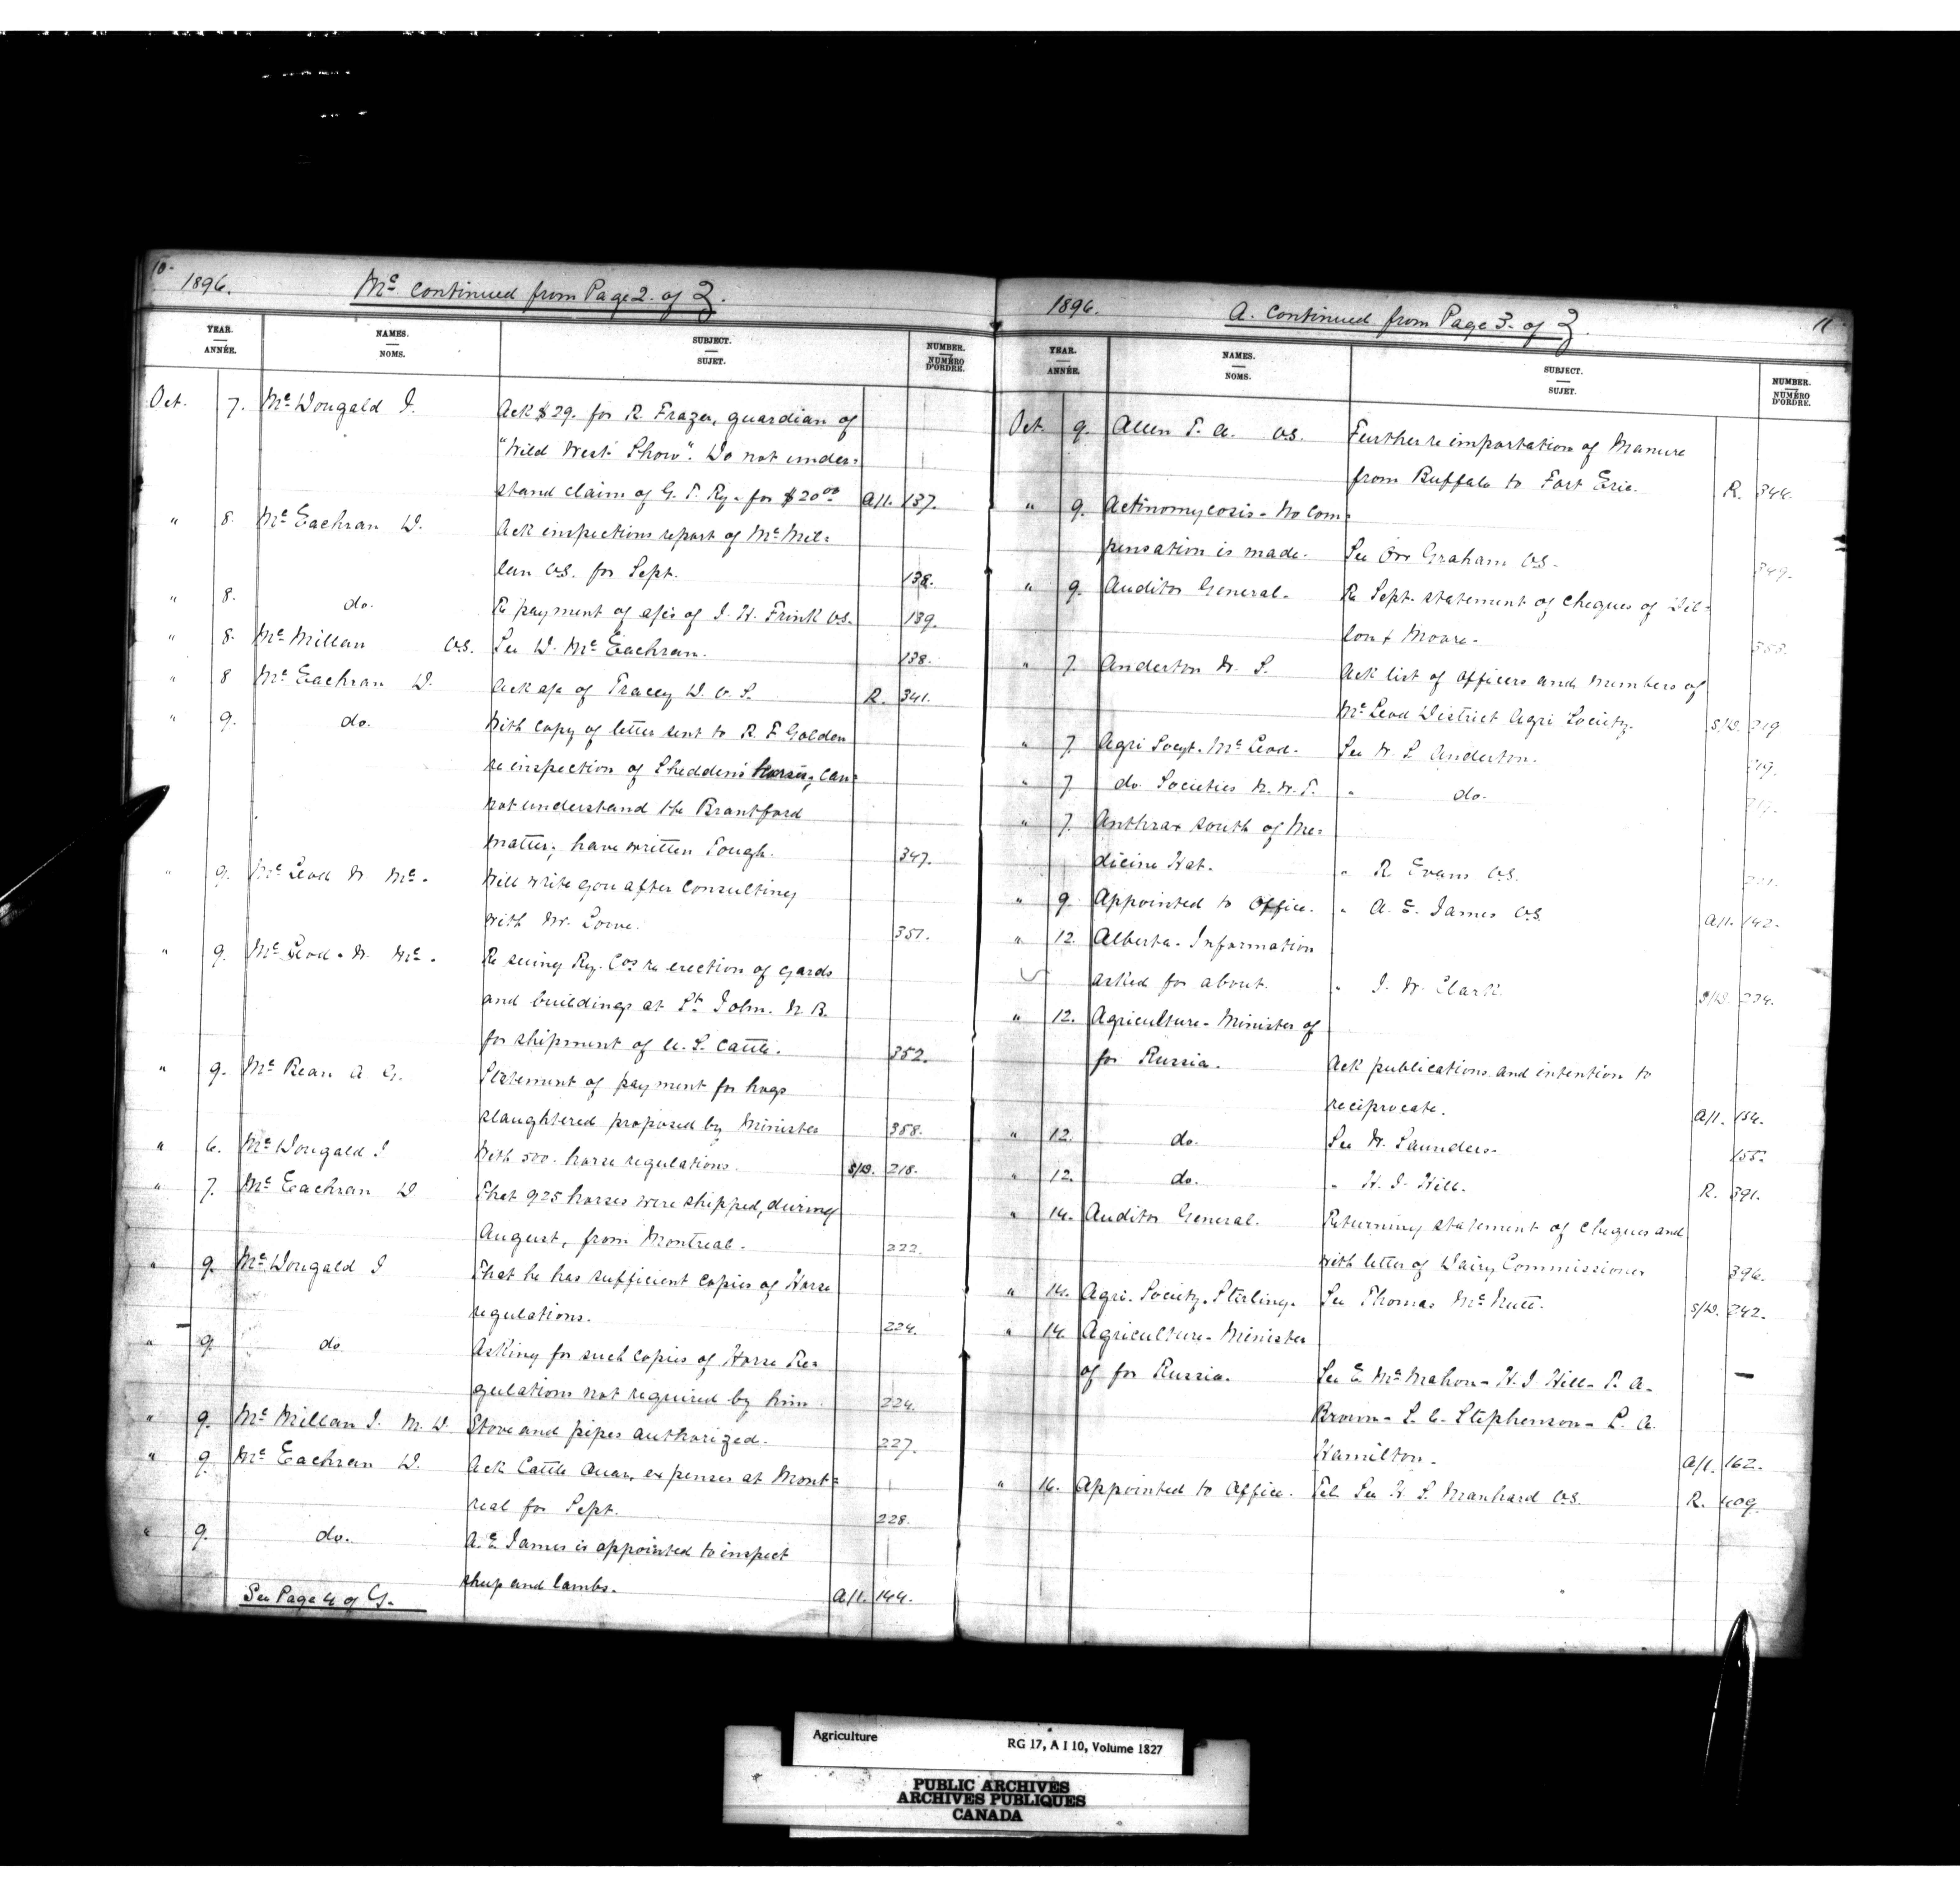 10.
1896.
Mc continued from Page 2. of Z.
YEAR.
ANNÉE.
NAMES.
NOMS.
SUBJECT.
SUJET.
NUMBER.
NUMÉRO
D'ORDRE.
Oct. 7. Mc Dougald J. Ack $29. for R. Frazer, guardian of
"Wild West Show". Do not under=
stand claim of G. T. Ry. for $20.00 A/1. 137.
" 8. Mc Eachran D. Ack inspections report of Mc Mil=
lan V.S. for Sept. 138.
" 8. do. Re payment of a/cs of J. H. Frink V.S. 139.
" 8. Mc Millan V.S. See D. Mc Eachran. 138.
" 8 Mc Eachran D. Ack a/c of Tracey D. V. S. R. 341.
" 9. do. With copy of letter sent to R. F Golden
re inspection of Shedden's horses; can=
not understand the Brantford
matter; have written Tough. 347.
" 9. Mc Leod N. Mc. Will write you after consulting
with Mr. Lowe. 351.
" 9. Mc Leod. N. Mc. Re suing Ry. Cos re erection of yards
and buildings at St. John. N. B.
for shipment of U. S. Cattle. 352.
" 9. Mc Bean A G. Statement of payment for hogs
slaughtered proposed by Minister 358.
" 6. Mc Dougald J With 500. horse regulations. S/D. 218.
" 7. Mc Eachran D That 925 horses were shipped, during
August, from Montreal. 222.
" 9. Mc Dougald J That he has sufficient copies of Horse
regulations. 224.
" 9. do Asking for such copies of Horse Re=
gulations not required by him. 224.
" 9. Mc Millan J. M. D. Stove and pipes authorized. 227.
" 9. Mc Eachran D. Ack Cattle Quar. expenses at Mont=
real for Sept. 228.
" 9. do. A. E. James is appointed to inspect
sheep and lambs. A/1. 144.
See Page 4 of G.
1896.
A. continued from Page 3. of Z.
11
YEAR.
ANNÉE.
NAMES.
NOMS.
SUBJECT.
SUJET.
NUMBER.
NUMÉRO
D'ORDRE.
Oct. 9. Allen T. A. V.S. Further re importation of Manure
from Buffalo to Fort Erie. R. 344.
" 9. Actinomycosis - No com=
pensation is made. See Orr Graham V.S. 349.
" 9. Auditor General. Re Sept. statement of cheques of Dil=
lon & Moore. 353.
" 7. Anderton W. S. Ack list of officers and members of
Mc Leod District Agri Society. S/D. 219
" 7. Agri Socyt. Mc Leod. See W. S Anderton. 219.
" 7. do. Societies N. W. T. " do. 219.
" 7. Anthrax south of Me=
dicine Hat. " R. Evans V.S.
" 9. Appointed to Office. " A. E. James V.S. A/1. 142.
" 12. Alberta - Information
asked for about. " J. W. Clark. S/D. 234.
" 12. Agriculture - Minister of
for Russia. Ack publications and intention to
reciprocate. A/1. 154.
" 12. do. See W. Saunders. 155.
" 12. do. " H. J. Hill. R. 391.
" 14. Auditor General. Returning statement of cheques and
with letter of Dairy Commissioner 396.
" 14. Agri. Society. Stirling. See Thomas Mc Nutt. S/D. 242.
" 14. Agriculture - Minister
of for Russia. See E. Mc Mahon - H. J Hill - P. A. —
Brown - S. C. Stephenson - L. A.
Hamilton. A/1. 162.
" 16. Appointed to Office. Tel. See H. S. Manhard V.S. R. 409.
Agriculture
RG 17, A I 10, Volume 1827
PUBLIC ARCHIVES
ARCHIVES PUBLIQUES
CANADA